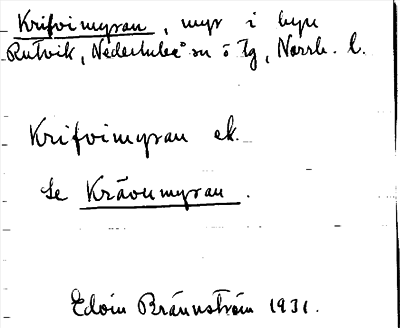 Krifvimyran, myr i byn
Rutvik, Nederluleå sn ö tg, Norrb. l.
Krifvimyran ek.
Se Krävumyran.
Edvin Brännström 1931.